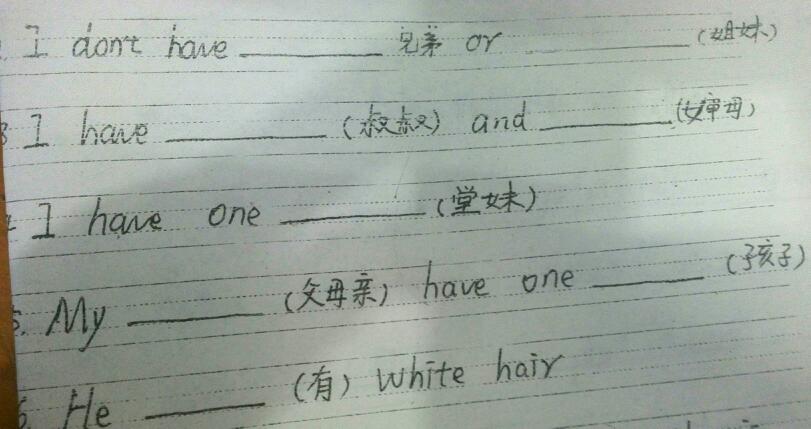 I don't have ________ 兄弟 or ________ (姐妹)
3 I have ________ (叔叔) and ________ (婶母)
I have one ________ (堂妹)
5. My ________ (父母亲) have one ________ (孩子)
6. He ________ (有) white hair